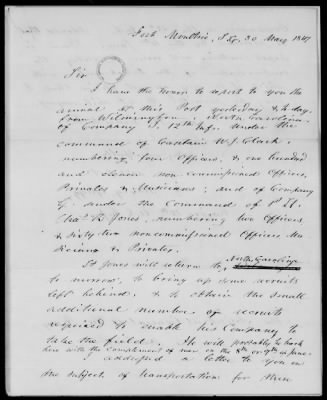 Fort Moultrie, S. Ca. 30 May 1847
Sir
I have the honor to report to you the
arrival at this Post yesterday & to-day,
from Wilmington, North Carolina
of Company I. 12th Inf. under the
command of Captain W. J. Clark,
numbering four Officers, & one hundred
and eleven non-commissioned Officers,
Privates & Musicians; and of Company
G. under the Command of 1st Lt.
Chas. R. Jones, numbering two Officers
& Sixty two noncommissioned Officers Mu
sicians & Privates.
Lt Jones will return to North Carolina
to morrow, to bring up some recruits
left behind, & to obtain the small
additional number of recruits
required to enable his Company to
take the field. He will probably be back
here with the complement of men on the 8th or 9th in June.
I addressed a letter to you on
the subject of transportation for these